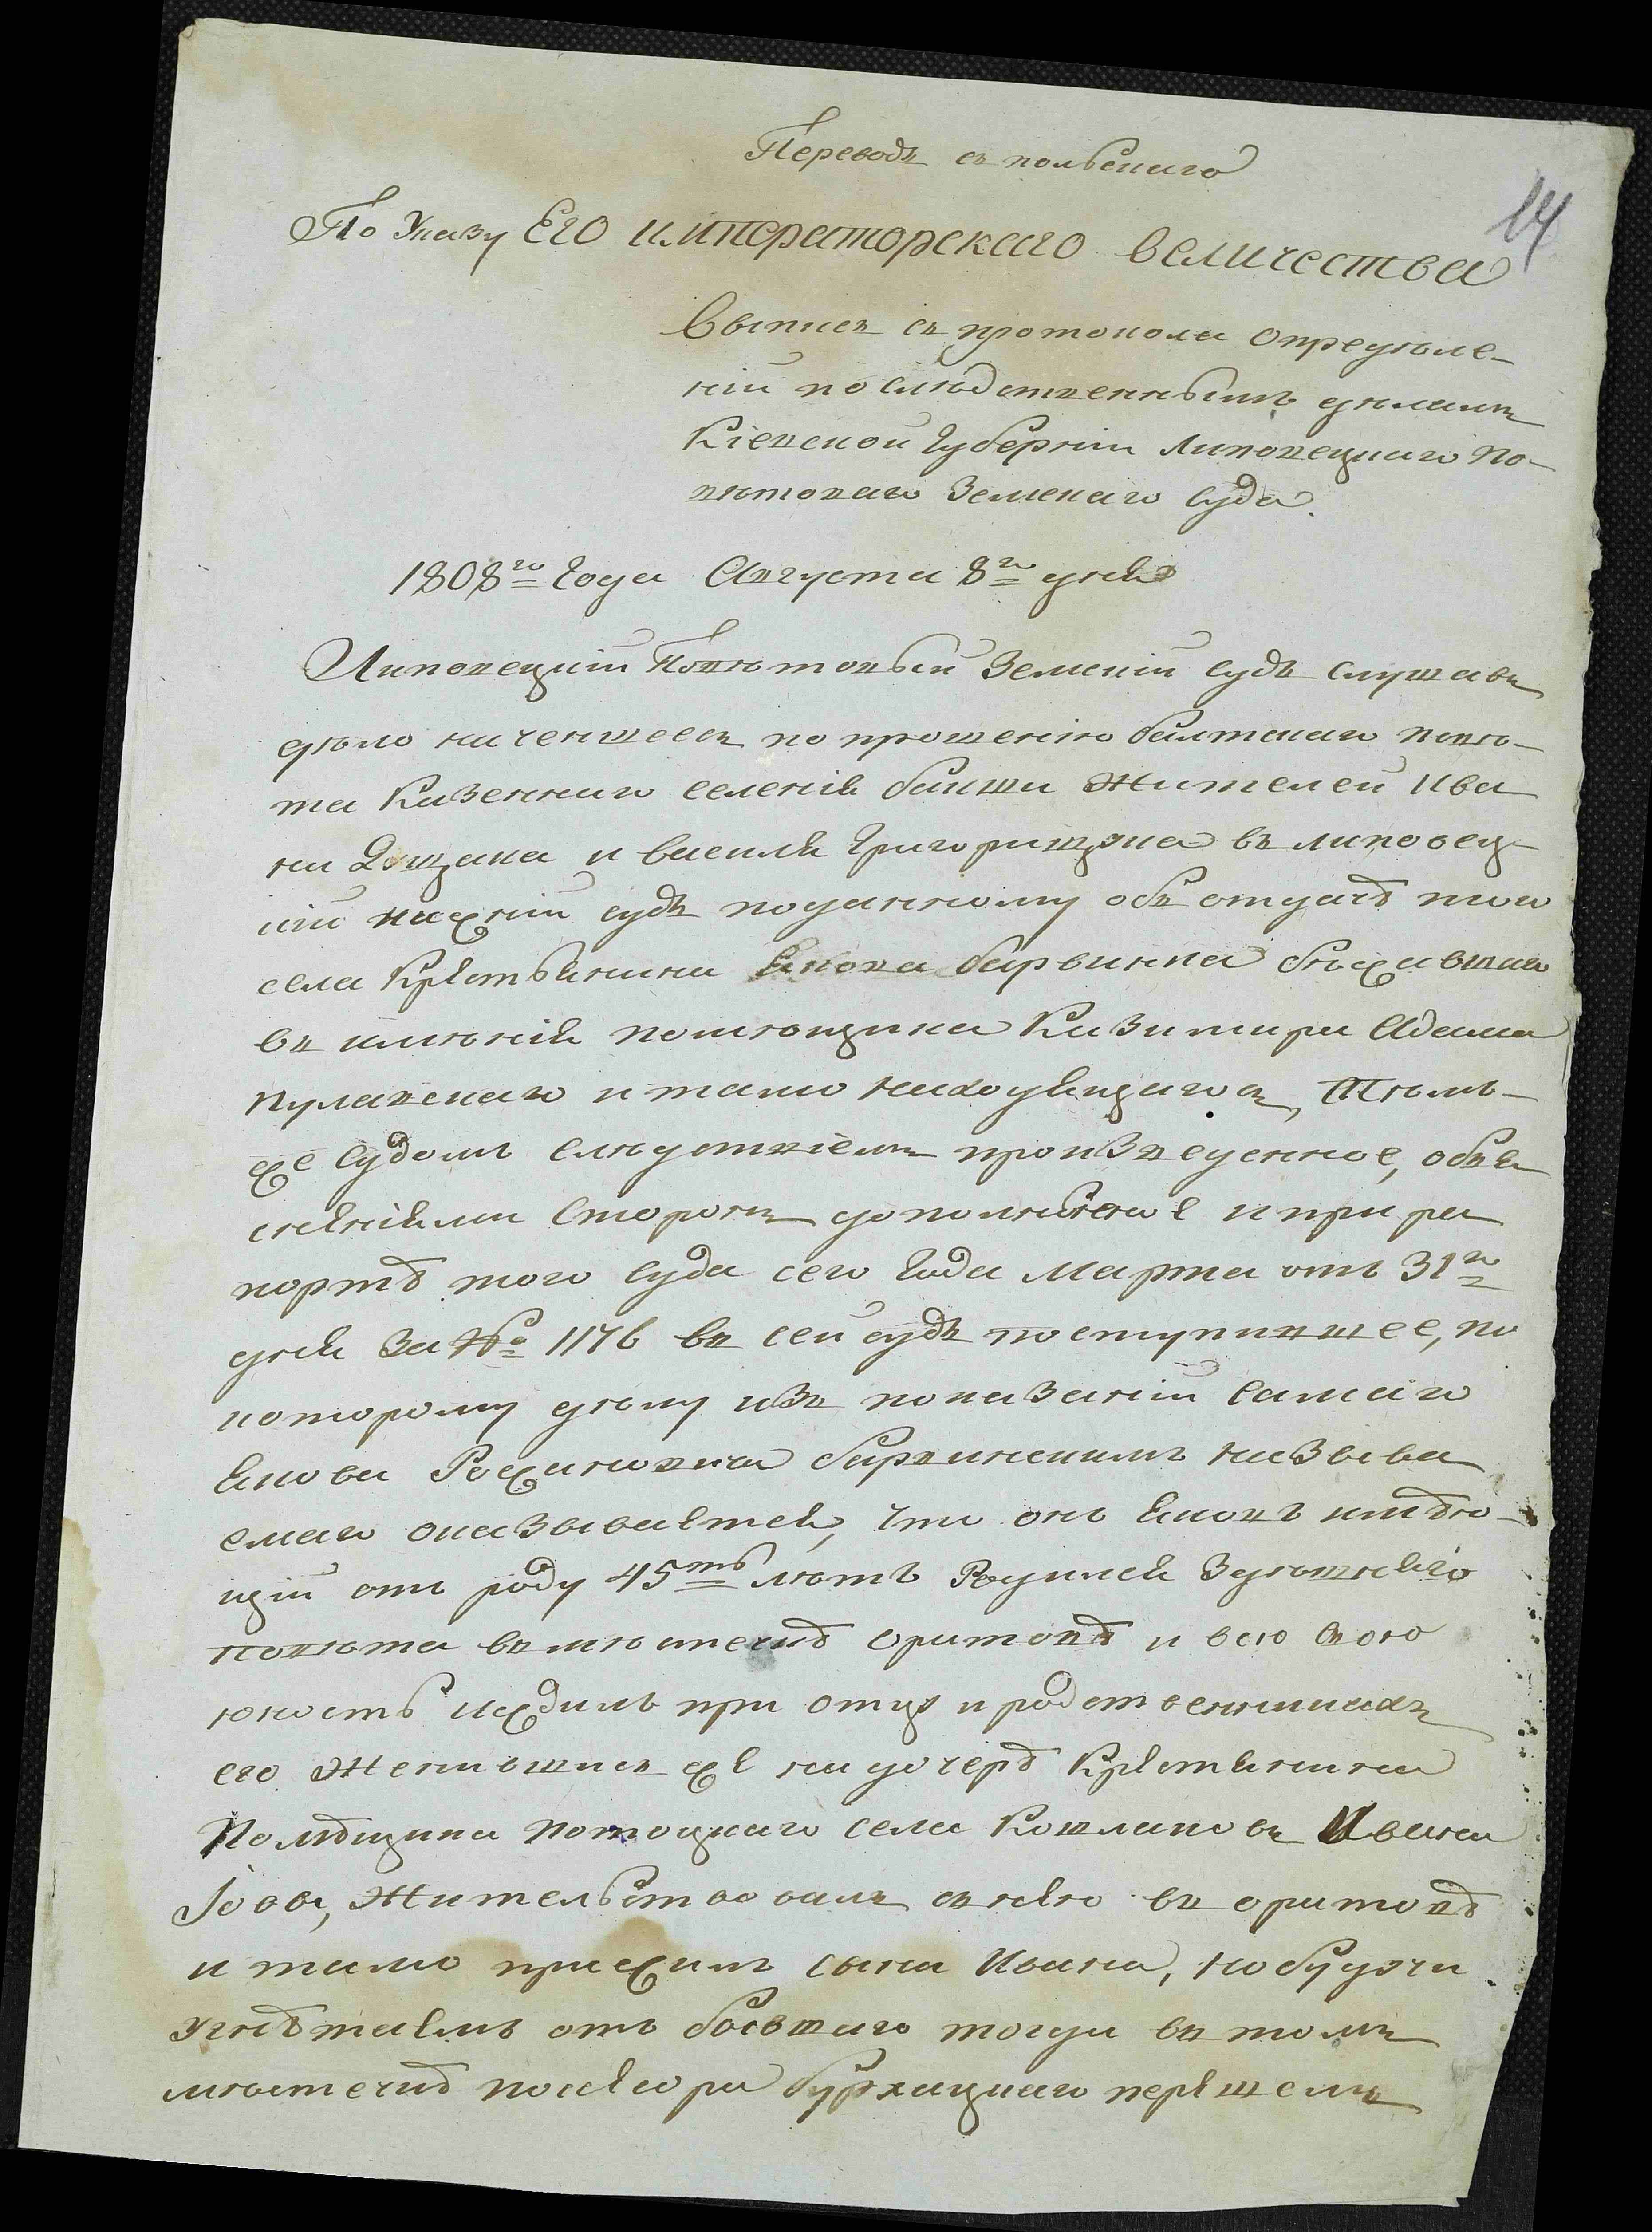 Переводъ съ польскаго
14
По Указу Его императорскаго величества
Выписъ съ протокола опредѣле-
ній по слѣдственнымъ дѣламъ
Кіевской Губерніи Липовецкаго По-
вѣтоваго Земскаго Суда.
1808го Года Августа 8го дня
Липовецкій Повѣтовый Земскій судъ слушавъ
дѣло начевшеесъ по прошенію балтскаго повѣ-
та Казеннаго селенія бакши Жителей Ива
на и василя въ липовец-
кій нижній судъ поданному объ отдачѣ того
села Крестьянина Якова барвинка бѣжавшаго
въ имѣнія помѣщика Казимира Адама
пулавскаго и тамо находящагось, Тѣмъ-
же Судомъ слѣдствіемъ произведенное, объя
сненіями Сторонъ дополненное и при ра
портѣ того Суда сего Года Марта отъ 31го
дня За №о 1176 въ сей судъ поступившее, по
которому дѣлу изъ показаній Самаго
Якова барвинскимъ называ
емаго оказывается, что онъ Яковъ имѣю-
щій отъ роду 45ть лѣтъ Родился
повѣта въ мѣстечкѣ оритовѣ и всю свою
юность при отцѣ и родственникахъ
его Женившисъ же на дочерѣ Крестянина
Помѣщика потоцкаго села Кошлаковъ Ивана
Іова, Жительствовалъ съ нею въ оритовѣ
и тамо прижилъ сына Ивана, но будучи
угнѣтаемъ отъ бывшаго тогда въ томъ
мѣстечкѣ посесора перешелъ